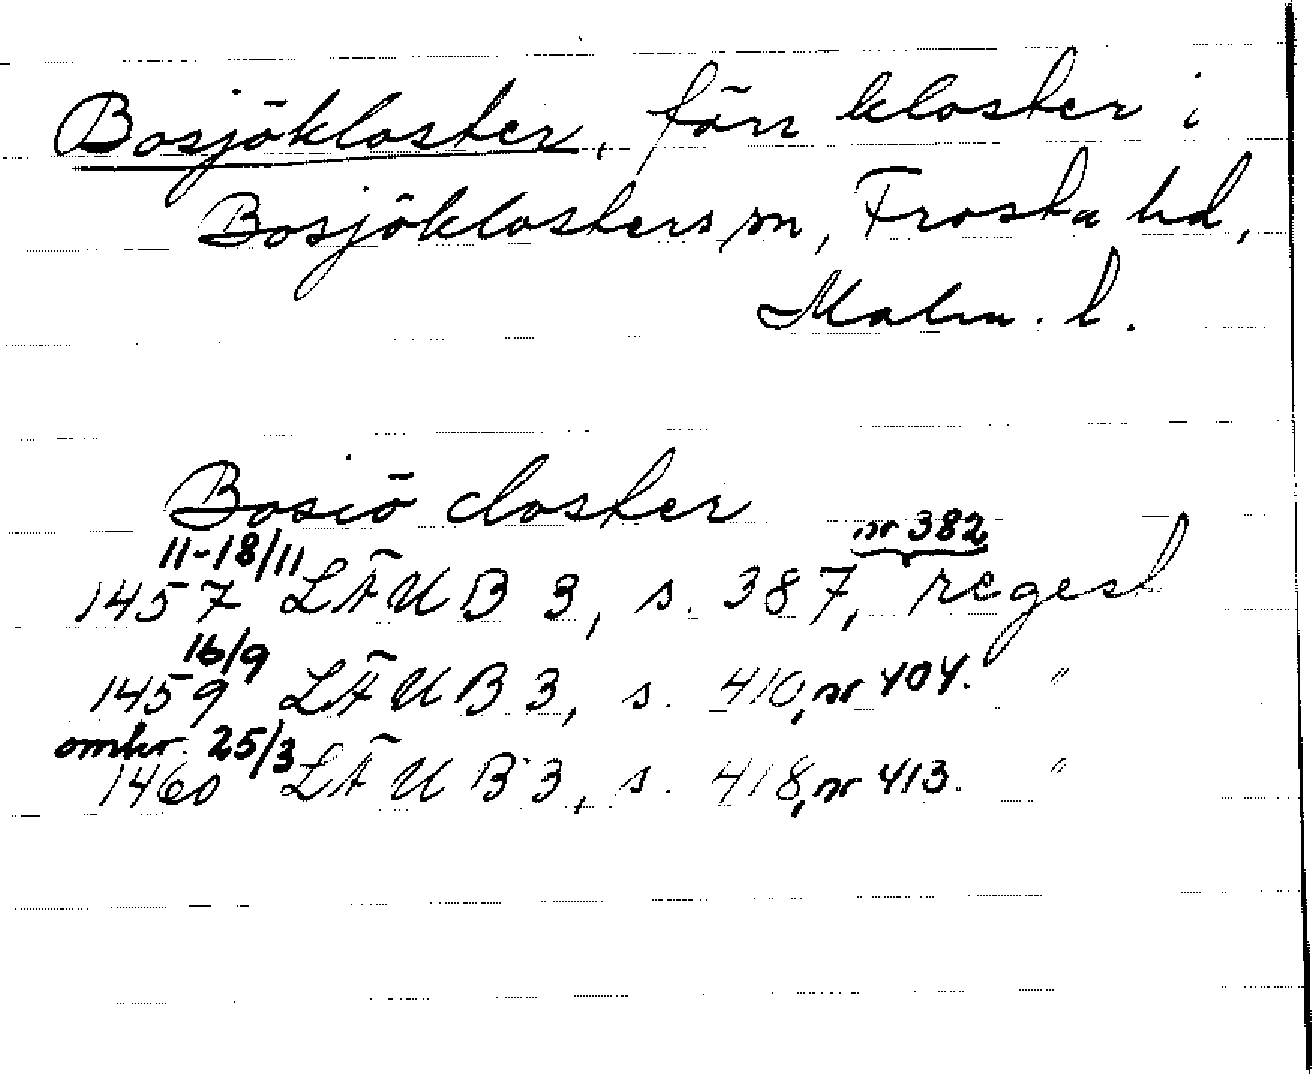 Bosjökloster, förr kloster i
Bosjöklosters sn, Frosta hd,
Malm. l.
Bosiö closter
11-18/11 nr 382
1457 LÄUB 3, s. 387, regest
16/9
1459 LÄUB 3, s. 410, nr 404. "
omkr. 25/3
1460 LÄUB 3, s. 418, nr 413. "